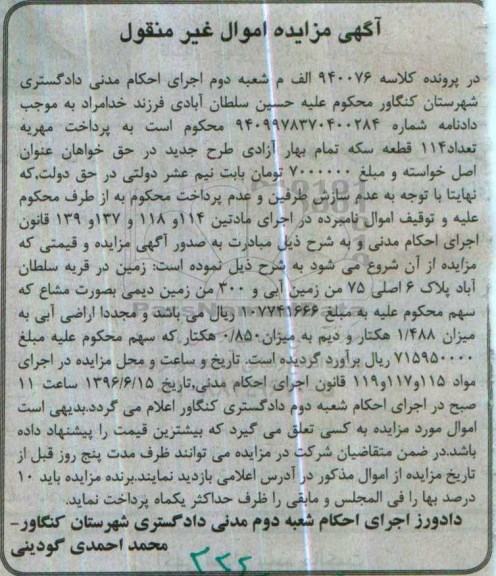 آگهی مزایده اموال غیر منقول
در پرونده کلاسه ۹۴۰۰۷۶ الف م شعبه دوم اجرای احکام مدنی دادگستری
شهرستان کنگاور محکوم علیه حسین سلطان آبادی فرزند خدامراد به موجب
دادنامه شماره ۹۴۰۹۹۷۸۳۷۰۴۰۰۲۸۴ محکوم است به پرداخت مهریه
تعداد۱۱۴ قطعه سکه تمام بهار آزادی طرح جدید در حق خواهان عنوان
اصل خواسته و مبلغ ۷۰۰۰۰۰۰ تومان بابت نیم عشر دولتی در حق دولت,که
نهایتا با توجه به عدم سازش طرفین و عدم پرداخت محکوم به از طرف محکوم
علیه و توقیف اموال نامبرده در اجرای مادتین ۱۱۴و ۱۱۸ و ۱۳۷و ۱۳۹ قانون
اجرای احکام مدنی و به شرح ذیل مبادرت به صدور آگهی مزایده و قیمتی که
مزایده از آن شروع می شود به شرح ذیل نموده است: زمین در قریه سلطان
آباد پلاک ۶ اصلی ۷۵ من زمین آبی و ۳۰۰ من زمین دیمی بصورت مشاع که
سهم محکوم علیه به مبلغ ۱۰۷۷۴۱۶۶۶ ریال می باشد و مجددا اراضی آبی به
میزان ۱/۴۸۸ هکتار و دیم به میزان۰/۸۵۰ هکتار که سهم محکوم علیه مبلغ
۷۱۵۹۵۰۰۰۰ ریال برآورد گردیده است. تاریخ و ساعت و محل مزایده در اجرای
مواد ۱۱۵و۱۱۷و۱۱۹ قانون اجرای احکام مدنی,تاریخ ۱۳۹۶/۶/۱۵ ساعت ۱۱
صبح در اجرای احکام شعبه دوم دادگستری کنگاور اعلام می گردد.بدیهی است
اموال مورد مزایده به کسی تعلق می گیرد که بیشترین قیمت را پیشنهاد داده
باشد.در ضمن متقاضیان شرکت در مزایده می توانند ظرف مدت پنج روز قبل از
تاریخ مزایده از اموال مذکور در آدرس اعلامی بازدید نمایند.برنده مزایده باید ۱۰
درصد بها را فی المجلس و مابقی را ظرف حداکثر یکماه پرداخت نماید.
دادورز اجرای احکام شعبه دوم مدنی دادگستری شهرستان کنگاور–
محمد احمدی گودینی